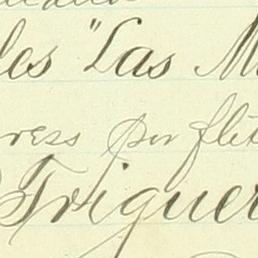 les "Las M
ress por flet
Triguer